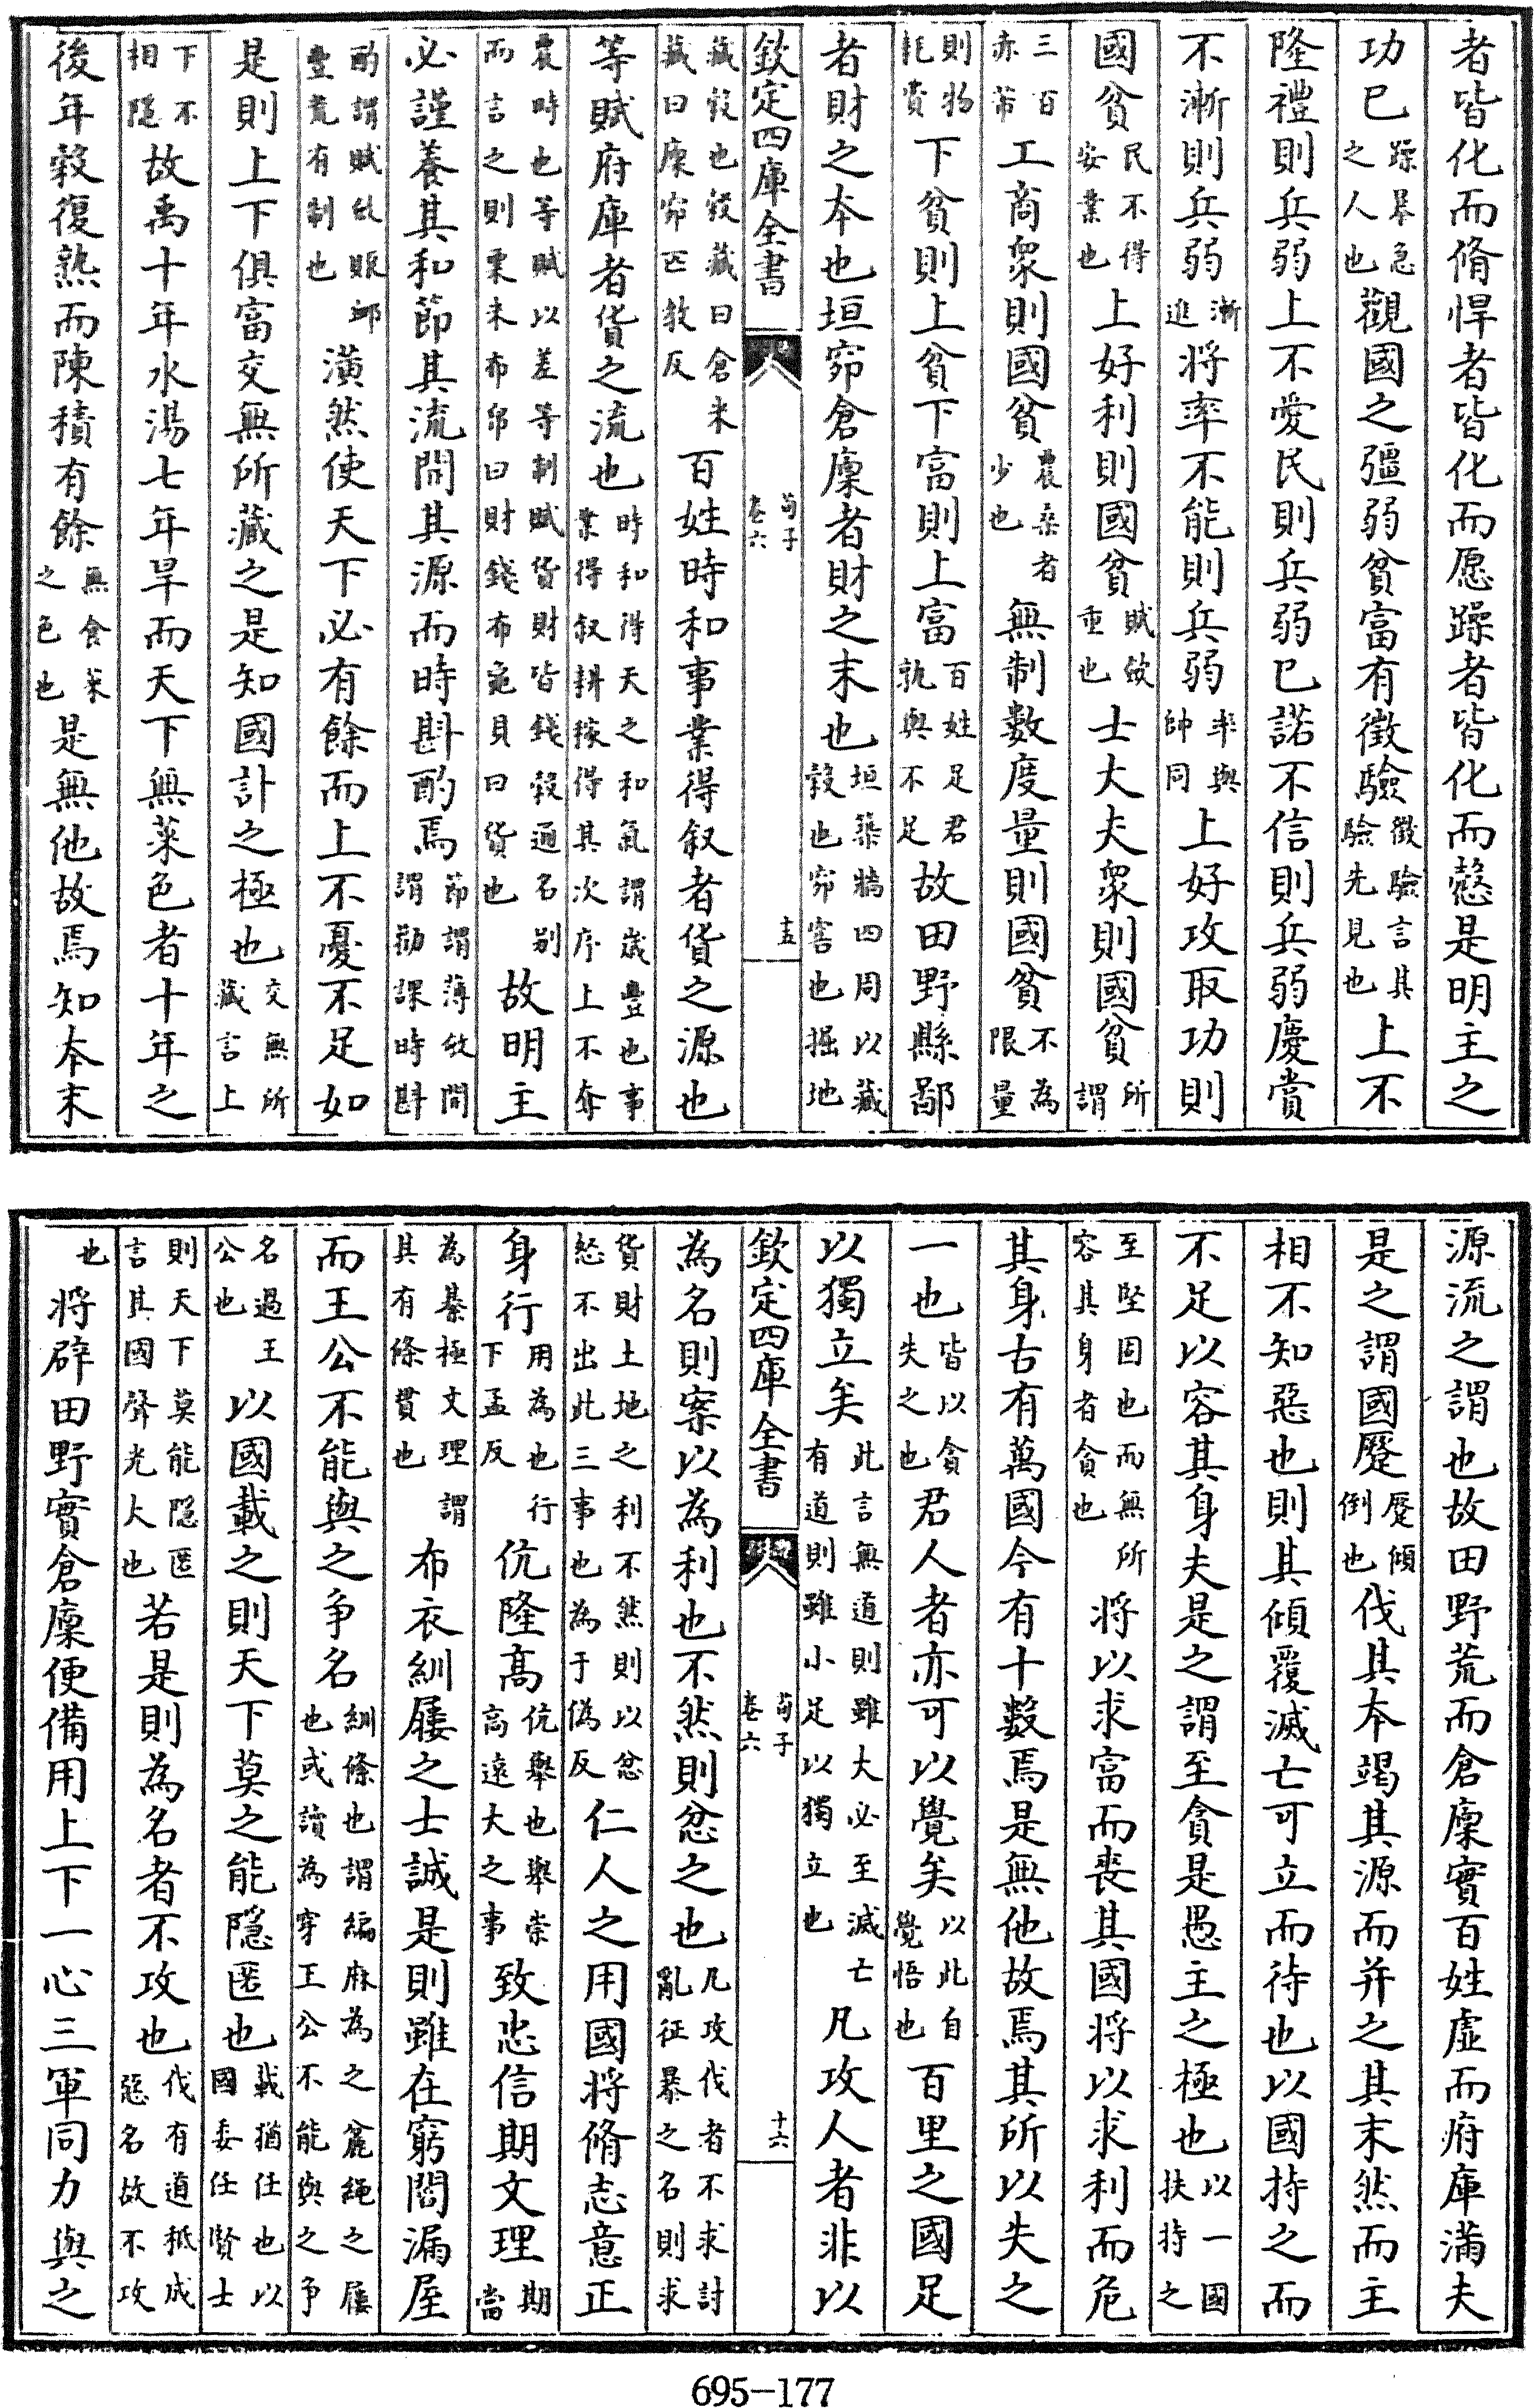 者皆化而脩悍者皆化而愿躁者皆化而慤是明主之
功已躁暴急之人也觀國之彊弱貧富有徵驗徵驗言其驗先見也上不
隆禮則兵弱上不愛民則兵弱已諾不信則兵弱慶賞
不漸則兵弱漸進将率不能則兵弱率與帥同上好攻取功則
國貧民不得安業也上好利則國貧賦斂重也士大夫衆則國貧所謂
三百赤芾工商衆則國貧農桑者少也無制數度量則國貧不為限量
則物耗費下貧則上貧下富則上富百姓足君孰與不足故田野縣鄙
者財之本也垣窌倉廩者財之末也垣築牆四周以藏穀也窌窖也掘地
欽定四庫全書 荀子卷六 十五
藏穀也穀藏曰倉米藏曰廩窌匹教反百姓時和事業得叙者貨之源也
等賦府庫者貨之流也時和得天之和氣謂歲豐也事業得叙耕稼得其次序上不奪
農時也等賦以差等制賦貨財皆錢穀通名别而言之則粟米布帛曰財錢布龜貝曰貨也故明主
必謹養其和節其流開其源而時斟酌焉節謂薄斂開謂勸課時斟
酌謂賦斂賑䘏豐荒有制也潢然使天下必有餘而上不憂不足如
是則上下俱富交無所藏之是知國計之極也交無所藏言上
下不相隱故禹十年水湯七年旱而天下無菜色者十年之
後年穀復熟而陳積有餘無食菜之色也是無他故焉知本末
源流之謂也故田野荒而倉廩實百姓虛而府庫滿夫
是之謂國蹷蹷傾倒也伐其本竭其源而并之其末然而主
相不知惡也則其傾覆滅亡可立而待也以國持之而
不足以容其身夫是之謂至貪是愚主之極也以一國扶持之
至堅固也而無所容其身者貪也将以求富而喪其國将以求利而危
其身古有萬國今有十數焉是無他故焉其所以失之
一也皆以貪失之也君人者亦可以覺矣以此自覺悟也百里之國足
以獨立矣此言無道則雖大必至滅亡有道則雖小足以獨立也凡攻人者非以
欽定四庫全書 荀子卷六 十六
為名則案以為利也不然則忿之也凡攻伐者不求討亂征暴之名則求
貨財土地之利不然則以忿怒不出此三事也為于偽反仁人之用國将脩志意正
身行用為也行下孟反伉隆高伉舉也舉崇高遠大之事致忠信期文理期當
為綦極文理謂其有條貫也布衣紃屨之士誠是則雖在窮閻漏屋
而王公不能與之争名紃絛也謂編麻為之麄繩之屨也或讀為穿王公不能與之争
名過王公也以國載之則天下莫之能隱匿也載猶任也以國委任賢士
則天下莫能隱匿言其國聲光大也若是則為名者不攻也伐有道秪成惡名故不攻
也将辟田野實倉廩便備用上下一心三軍同力與之
695-177